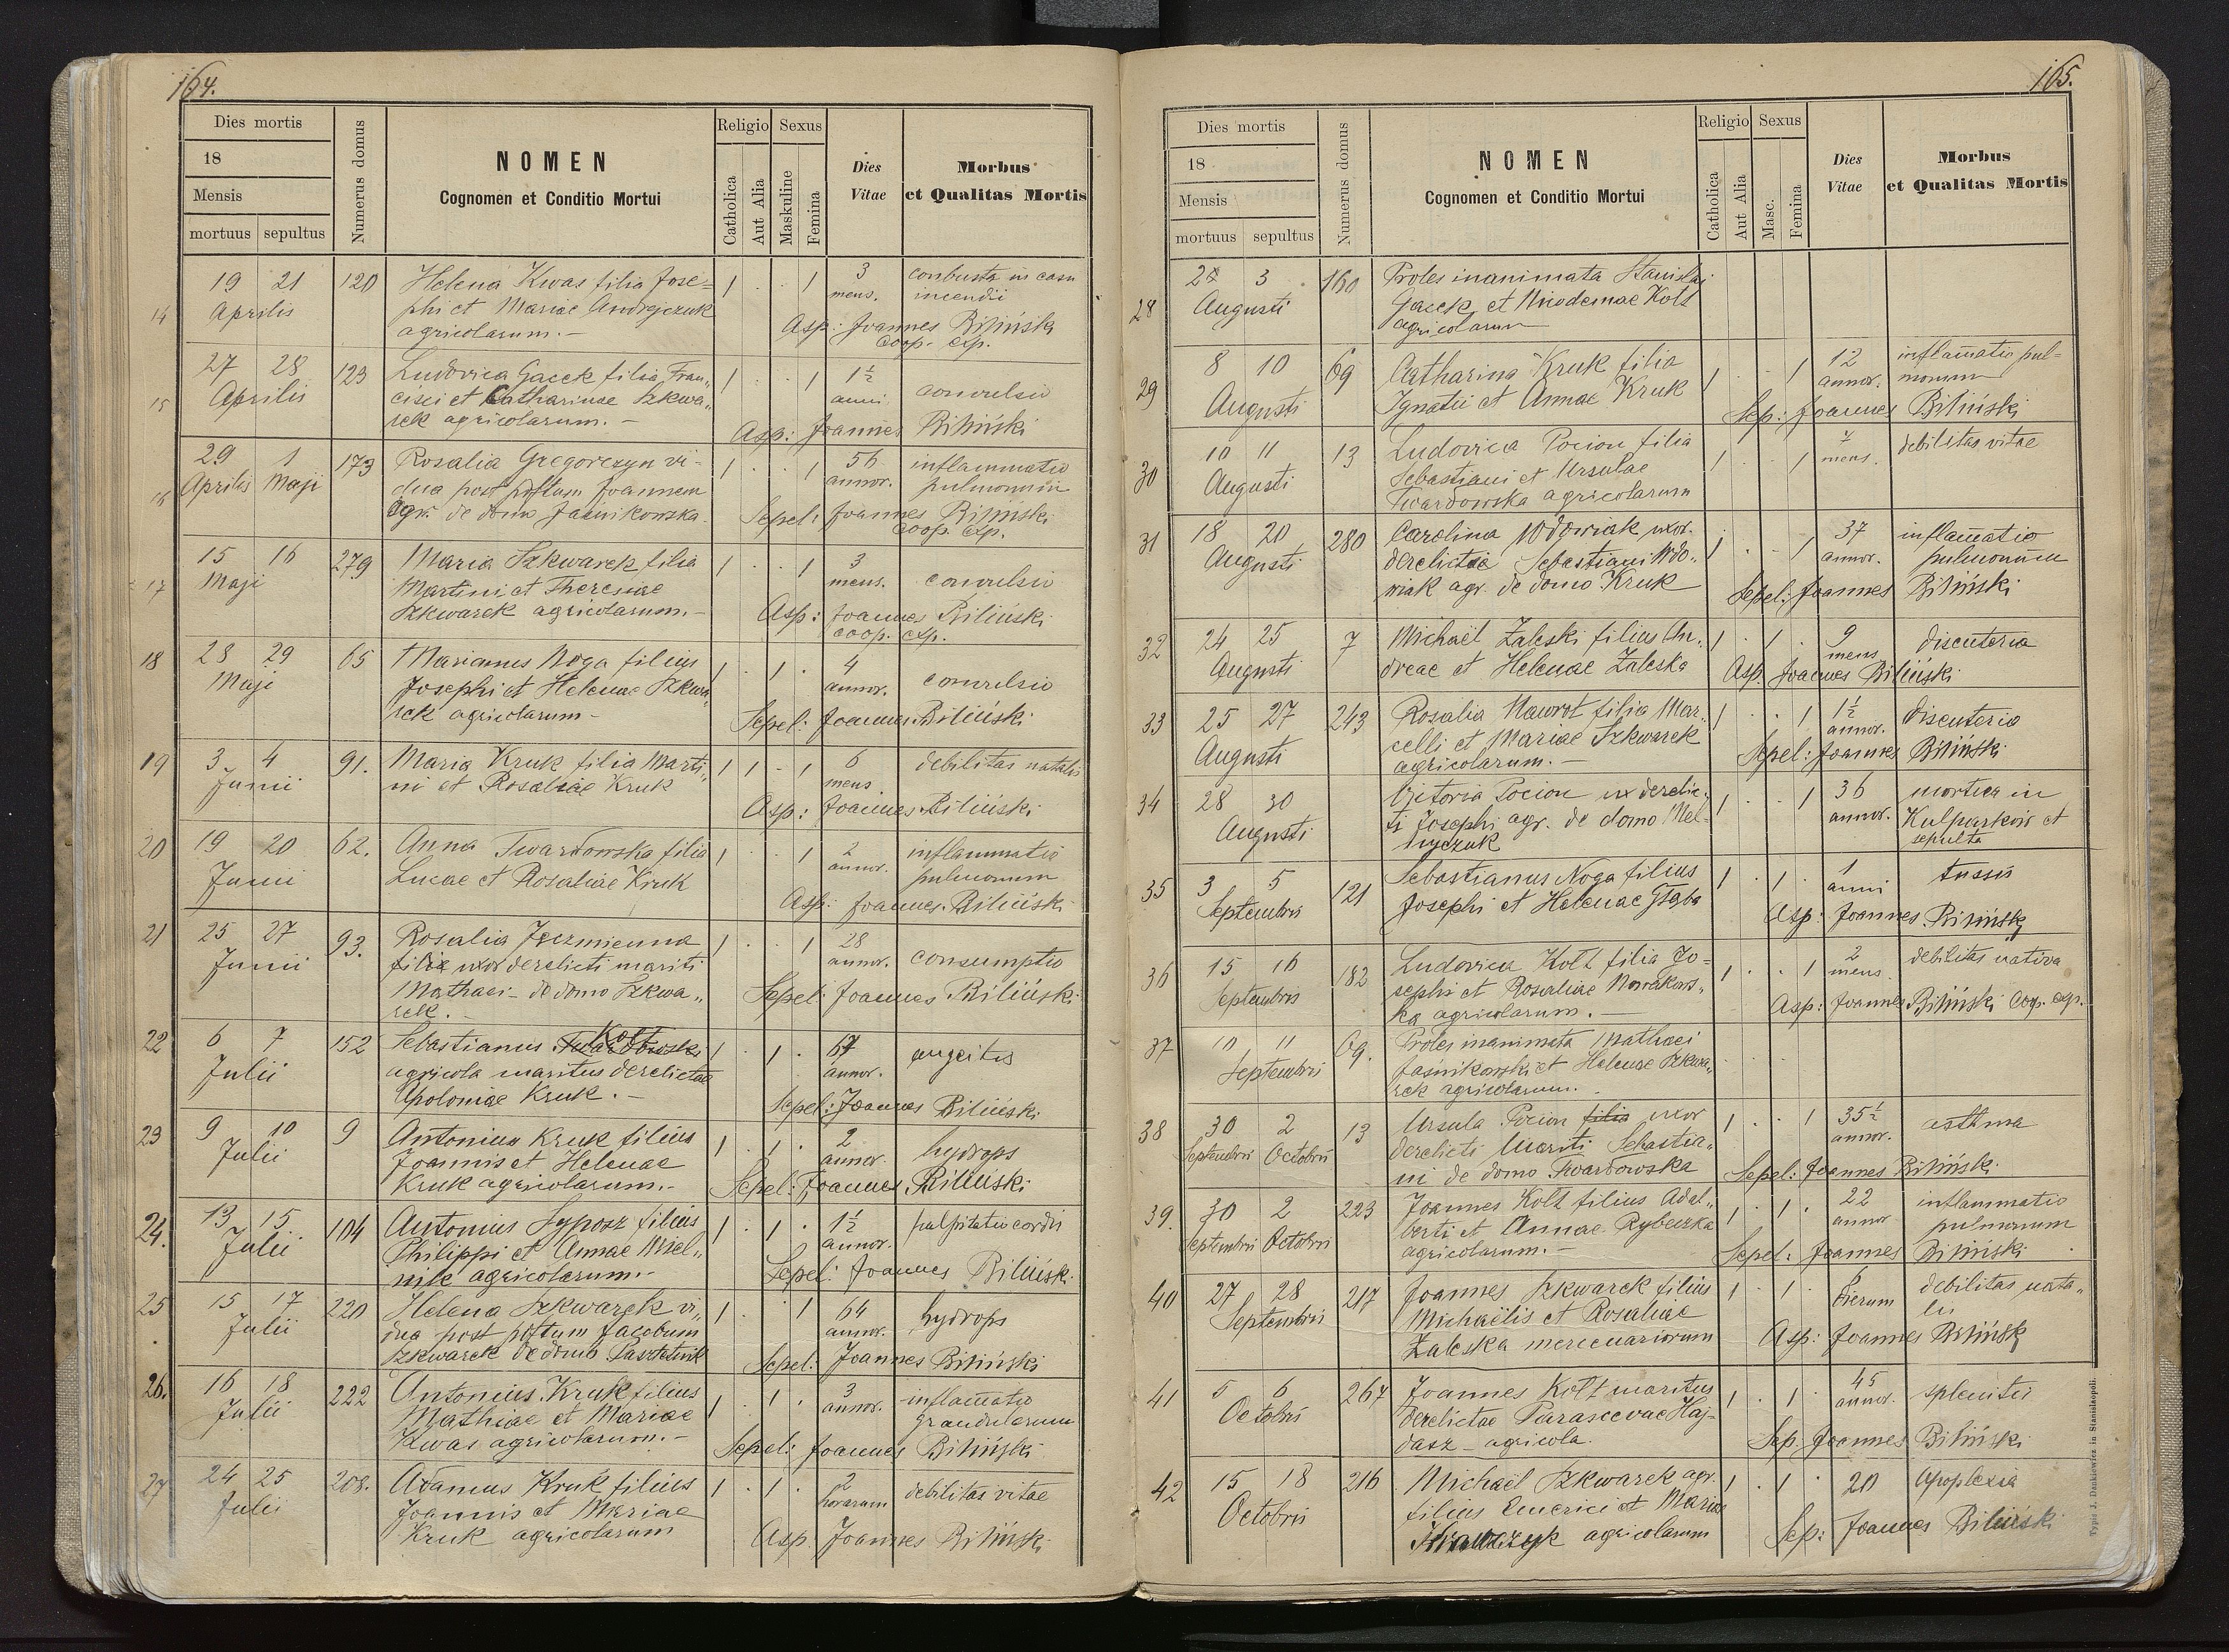 164.
Dies mortis
18
Mensis
mortuus sepultus
Numerus domus
NOMEN
Cognomen et Conditio Mortui
Religio Sexus
Catholica
Aut Alia
Maskuline
Femina
Dies
Vitae
Morbus
et Qualitas Mortis
14 19 21 120 Helena Kwas filia Jose= 1 . . 1 3 conbusta in casu
Aprilis phi et Mariae Andrejczuk mens. incendii
agricolarum.- Asp: Joannes Biliński
coop. exp.
15 27 28 123 Ludovica Gacek filia Fran„ 1 . . 1 1½ convulsio
Aprilis cisci et Catharinae Szkwa„ anni
rek agricolarum.- Asp: Joannes Biliński
16 29 1 173 Rosalia Gregorczyn vi- 1 . . 1 56 inflammatio
Aprilis Maji dua post pottum Joannem annor. pulmonum
agr. de domo Jasnikowska. Sepel: Joannes Biliński
coop. exp.
17 15 16 279 Maria Szkwarek filia 1 . . 1 3 convulsio
Maji Martini et Theresiae mens.
Szkwarek agricolarum.- Asp: Joannes Biliński
coop. exp.
18 28 29 65 Marianus Noga filius 1 . 1 . 4 convulsio
Maji Josephi et Helenae Szkwa„ annor.
rek agricolarum- Sepel: Joannes Biliński
19 3 4 91. Maria Kruk filia Marti„ 1 1 . 1 6 debilitas natalis
Junii ni et Rosaliae Kruk mens
Asp: Joannes Biliński
20 19 20 62. Anna Twardowska filia 1 . . 1 2 inflammatio
Junii Lucae et Rosaliae Kruk annor. pulmonum
Asp: Joannes Biliński
21 25 27 93. Rosalia Jeczmienna 1 . . 1 28 consumptio
Junii filia uxor derelicti mariti annor.
Mathaei - de domo Szkwa„ Sepel: Joannes Biliński
rek.-
22 6 7 152 Sebastianus Twardowski Kolt 1 . 1 . 67 angeitis
Julii agricola maritus derelictae annor.
Apoloniae Kruk.- Sepel: Joannes Biliński
23 9 10 9 Antonius Kruk filius 1 . 1 . 2 hydrops
Julii Joannis et Helenae annor.
Kruk agricolarum.- Sepel: Joannes Biliński
24. 13 15 104 Antonius Syposz filius 1 . 1 . 1½ palpitatio cordis
Julii Philippi et Annae Miel„ annor.
nik agricolarum.- Sepel: Joannes Biliński
25 15 17 220 Helena Szkwarek vi„ 1 . . 1 64 hydrops
Julii dua post pottum Jacobum annor.
Szkwarek de domo Pasztetnik Sepel: Joannes Biliński
26. 16 18 222 Antonius Kruk filius 1 . 1 . 3 inflamatio
Julii Mathiae et Mariae annor. grandularum
Kwas agricolarum.- Sepel: Joannes Biliński
27 24 25 208. Adamus Kruk filius 1 . 1 . 2 debilitas vitae
Julii Joannis et Mariae horarum
Kruk agricolarum Asp Joannes Biliński
165.
Dies mortis
18
Mensis
mortuus sepultus
Numerus domus
NOMEN
Cognomen et Conditio Mortui
Religio Sexus
Catholica
Aut Alia
Masc.
Femina
Dies
Vitae
Morbus
et Qualitas Mortis
28 2 3 160 Proles inanimata Stanislai
Augusti Gacek et Nicodemae Kolt
agricolarum
29 8 10 69 Catharina Kruk filia 1 . . 1 12 inflamatio pul=
Augusti Ignatii et Annae Kruk annor. monum
Sep: Joannes Biliński
30 10 11 13 Ludovica Pocion filia 1 . . 1 mens. debilitas vitae
Augusti Sebastiani et Ursulae
Twardowska agricolarum
31 18 20 280 Carolina Wdowiak uxor. 1 . . 1 37 inflamatio
Augusti derelictae Sebastiani Wdo- annor. pulmonum
wiak agr. de domo Kruk Sepel: Joannes Biliński
32 24 25 7 Michaël Zaleski filius An- 1 . 1 . 9 discuteria
Augusti dreae et Helenae Zaleska mens
Asp. Joannes Biliński
33 25 27 243 Rosalia Nawrot filia Mar- 1 . . 1 1½ discuteria
Augusti celli et Mariae Szkwarek annor.
agricolarum.- Sepel: Joannes Biliński
34 28 30 Victoria Pocion ux derelic- 1 . . 1 36 mortua in
Augusti ti Josephi agr. de domo Mel- annor. Kulparkow et
nyczuk sepulta
35 3 5 121 Sebastianus Noga filius 1 . 1 . 1 tussis
Septembris Josephi et Helenae Głąba anni
Asp: Joannes Biliński
36 15 16 182 Ludovica Kolt filia Jo- 1 . . 1 2 debilitas nativa
Septembris sephi et Rosaliae Nowakows„ mens
ka agricolarum.- Asp: Joannes Biliński Cop. exp.
37 10 11 69. Proles inanimata Mathaei
Septembris Jasnikowski et Helenae Szkwa„
rek agricolarum.
38 30 2 13 Ursula Pocion filia uxor 1 . . 1 35½ asthma
Septembris Octobris derelicti Mariti Sebastia„ annor.
ni de domo Twardowska Sepel: Joannes Biliński
39. 30 2 223 Joannes Kolt filius Adal„ 1 . 1 . 22 inflammatio
Septembris Octobris berti et Annae Rybeczka annor pulmonum
agricolarum.- Sepel: Joannes Biliński
40 27 28 217 Joannes Szkwarek filius 1 . 1 . dierum debilitas nata„
Septembris Michaëlis et Rosaliae lis
Zaleska mercenariorum Asp: Joannes Biliński
41 5 6 267 Joannes Kolt maritus 1 . 1 . 45 splenitis
Octobris derelictae Parascevae Haj- annor.
dasz - agricola. Sep: Joannes Biliński
42 15 18 216 Michaël Szkwarek agr. 1 . 1 . 20 Apoplexia
Octobris filius Emerici et Mariae
agricolarum Sep: Joannes Biliński
Typis J. Dankiewicz in Stanislaopoli.